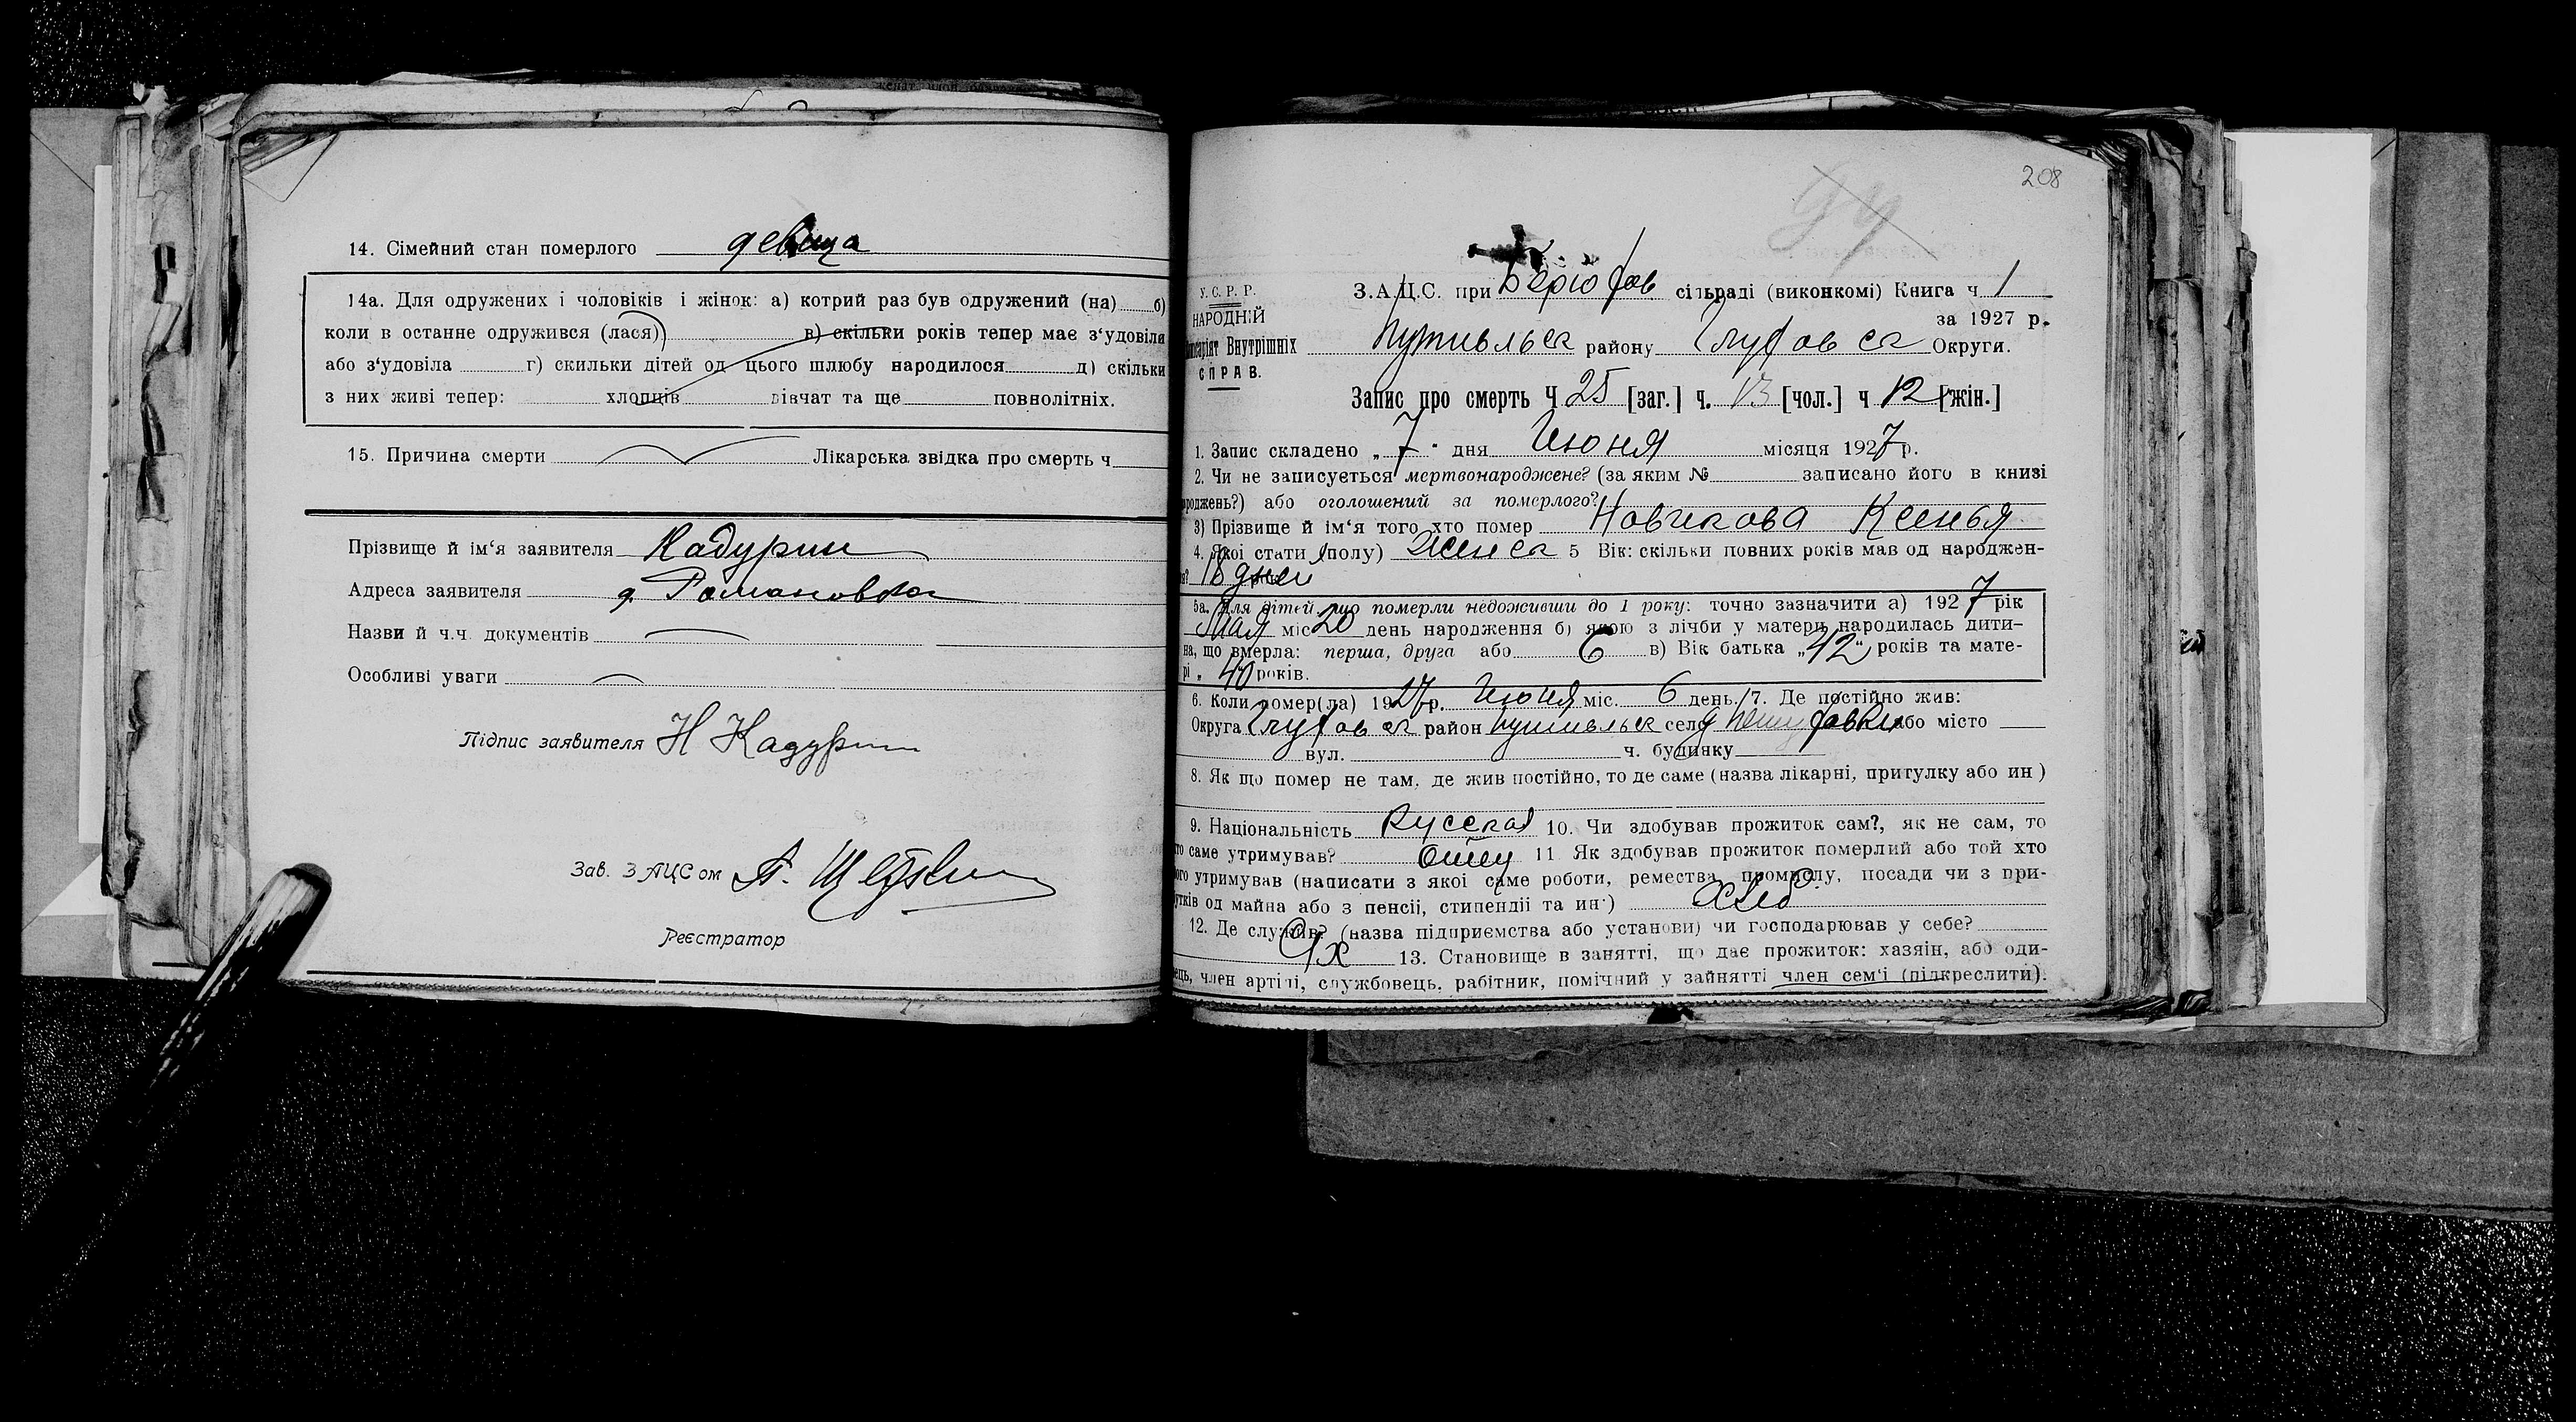 14. Сімейний стан померлого девица
14а. Для одружених і чоловіків і жінок: а) котрий раз був одружений (на) б)
коли в останне одружився (лася) в) скільки років тепер має з‘удовіла
або з‘удовіла г) скильки дітей од цього шлюбу народилося д) скільки
з них живі тепер: хлопців дівчат та ще повнолітніх.
15. Причина смерти Лікарська звідка про смерть ч
Прізвище й ім‘я заявителя Кадурин
Адреса заявителя д. Романовка
Назви й ч.ч. документів
Особливі уваги
Підпис заявителя Н Кадурин
Зав. ЗАЦСом А.
Реєстратор
208
У. С. Р. Р.
НАРОДНІЙ
Внутрішніх
СПРАВ.
З.А.Ц.С. при сільраді (виконкомі) Книга ч 1
за 1927 р.
Путивльск району Глуховск Округи.
Запис про смерть Ч 25 [заг.] ч. 13 [чол.] ч 12 [жін.]
1. Запис складено „7" дня Июня місяця 1927 р.
2. Чи не записується мертвонароджене? (за яким № записано його в книзі
роджень?) або оголошений за померлого?
3) Прізвище й ім‘я того хто помер Новикова Ксенья
4. Якої стати (полу) женск 5 Вік: скільки повних років мав од народжен-
18 дней
5а. Для дітей, що померли недоживши до 1 року: точно зазначити а) 1927 рік
Мая міс 20 день народження б) якою з лічби у матери народилась дити-
на, що вмерла: перша, друга або 6 в) Вік батька „42" років та мате-
рі „ 40 років.
6. Коли помер(ла) 1927 р. Июня міс. 6 день. 7. Де постійно жив:
Округа Глуховск район Путивльск село або місто
вул. ч. будинку
8. Як що помер не там, де жив постійно, то де саме (назва лікарні, притулку або ин)
9. Національність Русская 10. Чи здобував прожиток сам?, як не сам, то
то саме утримував? Отец 11 Як здобував прожиток померлий або той хто
ого утримував (написати з якої саме роботи, ремества, промислу, посади чи з при-
утків од майна або з пенсії, стипендії та ин·) Хлеб
12. Де служив? (назва підприємства або установи) чи господарював у себе?
13. Становище в занятті, що дає прожиток: хазяін, або оди-
ець, член артілі, службовець, рабітник, помічний у зайнятті член сем‘і (підкреслити).